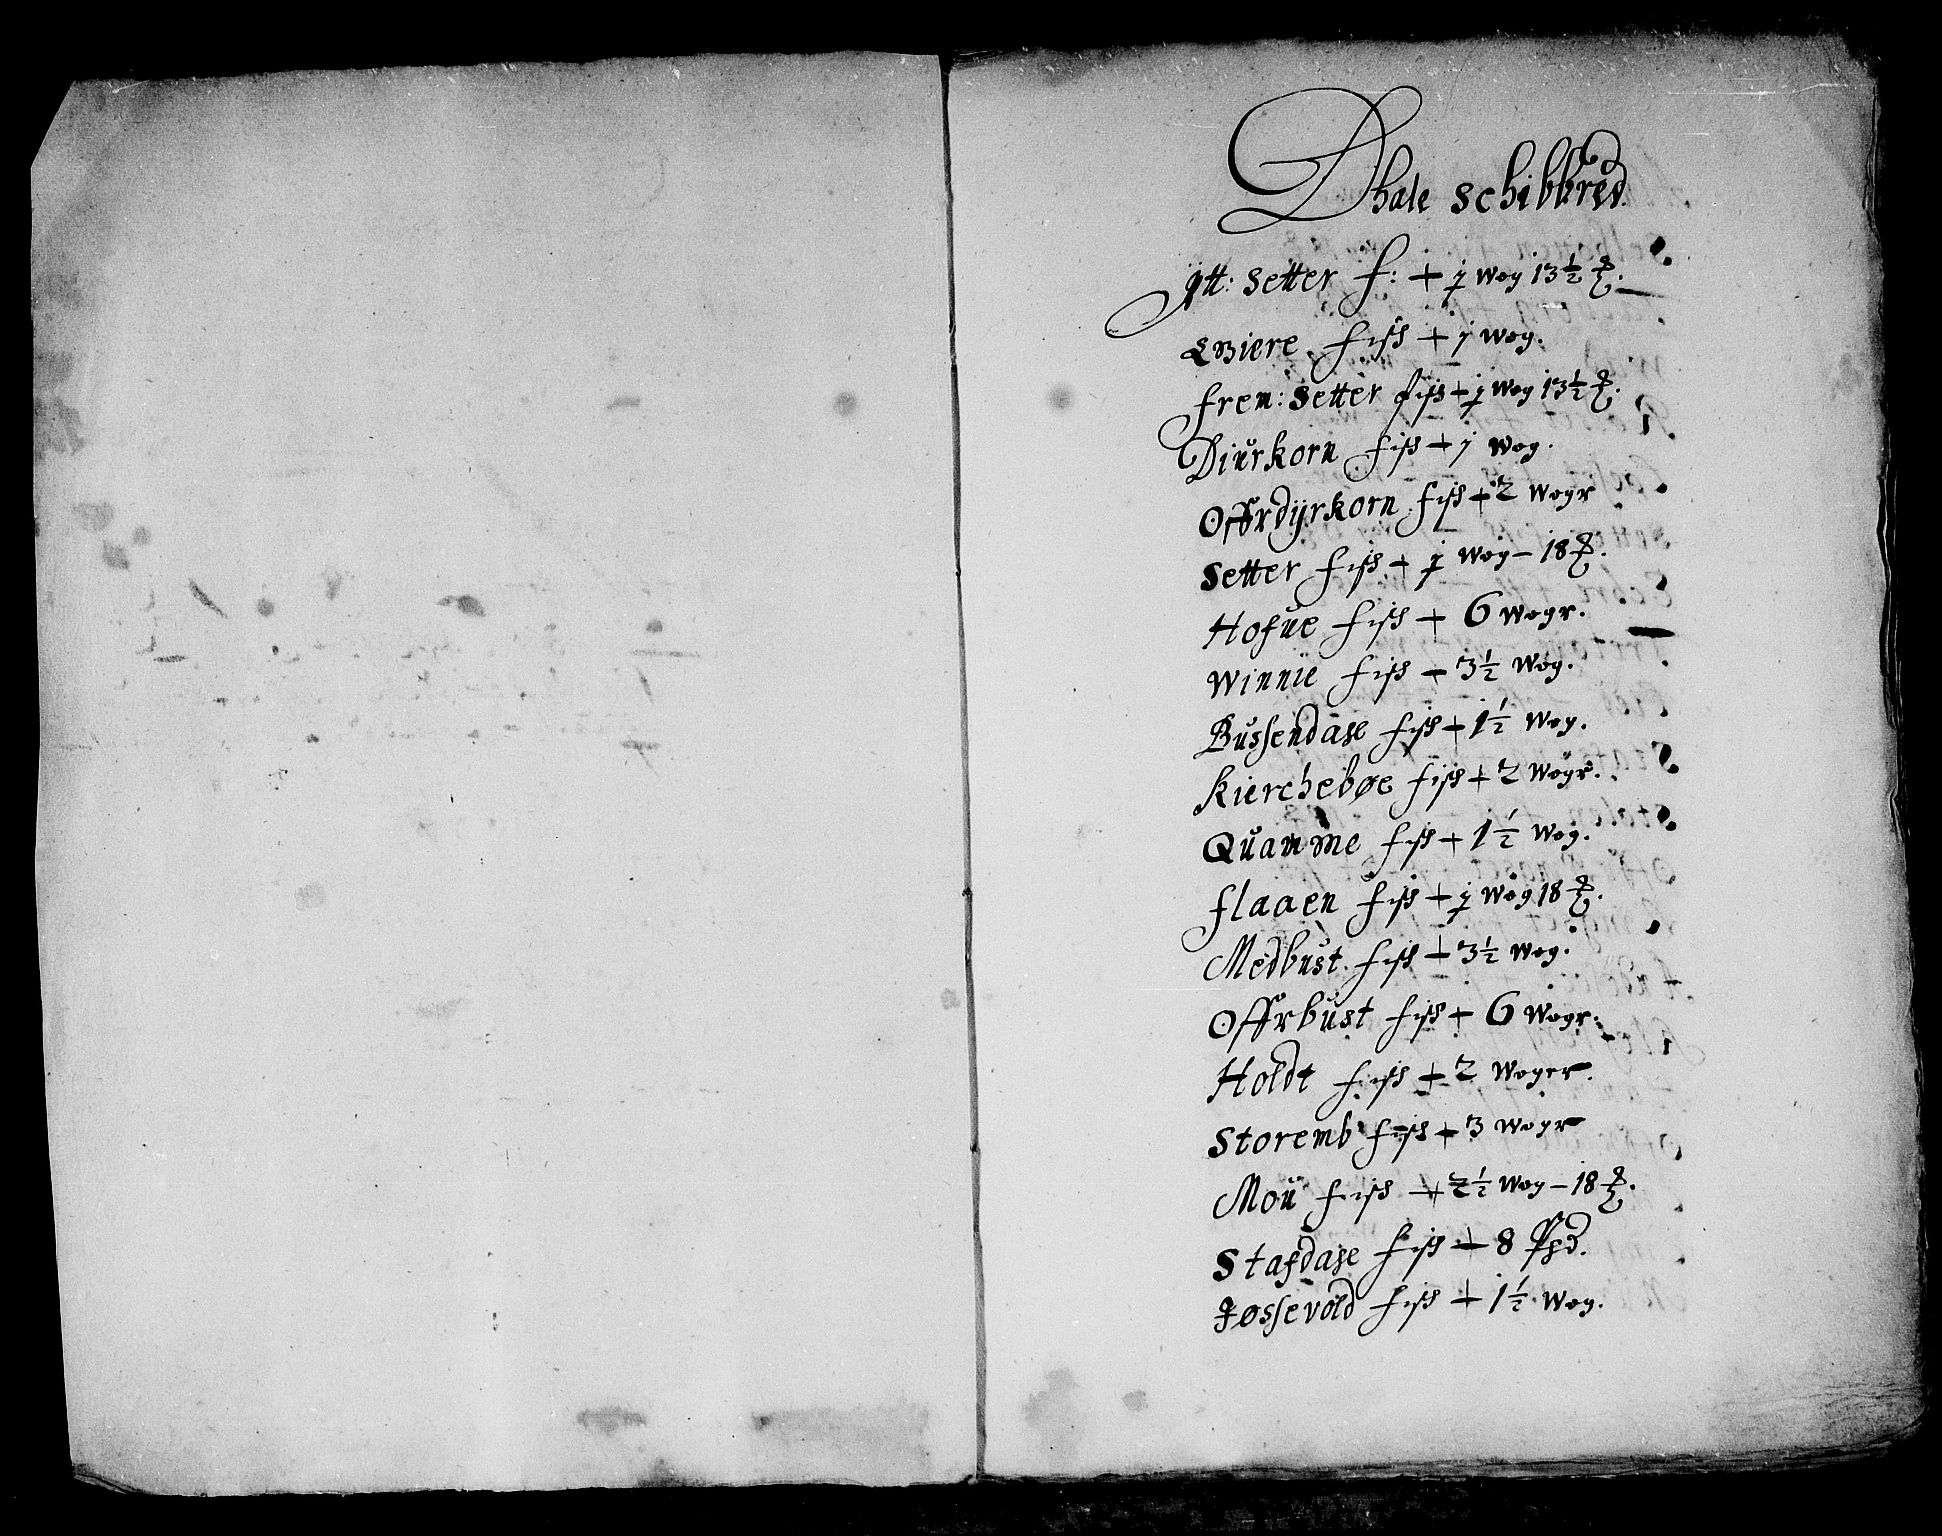 Dhale Schibbred
ytt: Setter f: + ½ Wog 13½ ℔.
Qviere fisk + j Wog.
frem: Setter fisk + ½ Wog 13½ ℔.
Diurkorn fisk + j Wog.
Offrdÿrkorn fisk + 2 Wogr
Setter fisk + ½ Wog – 18 ℔.
Hofue fisk + 6 Wogr.
Winnie fisk + 3½ Wog.
Bussendase fisk + 1½ Wog.
Kierchebøe fisk + 2 Wogr.
Quamme fisk + 1½ Wog.
flaaen fisk + ½ Wog 18 ℔.
Medbust fisk + 3½ Wog.
Offrbust fisk + 6 Wogr.
Holdt fisk + 2 Woger.
Storemb fisk + 3 Wogr
Mou fisk + 2½ Wog – 18 ℔.
Stafdase fisk + 8 Ppd.
Jøssevold fisk + 1½ Wog.